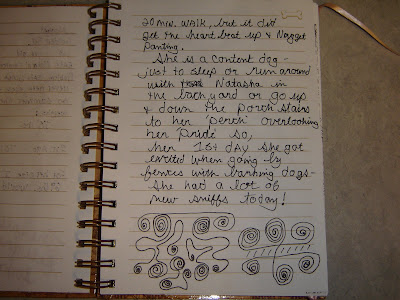 20 min. walk, but it did
get the heart beat up & Nugget
panting.
She is a content dog -
just to sleep or run around
with Natasha in
the backyard or go up
& down the porch stairs
to her 'perch' overlooking
her 'pride' so,
her 1st day she got
excited when going by
fences with barking dogs -
she had a lot of
new sniffs today!